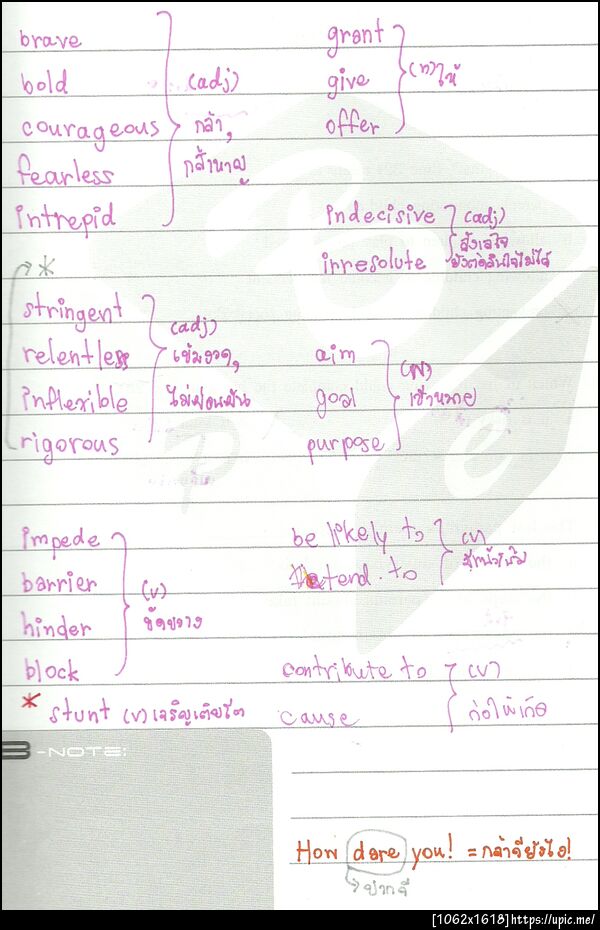 brave
bold
courageous
fearless
intrepid
(adj)
กล้า,
กล้าหาญ
grant
give
offer
ให้
indecisive
irresolute
(adj)
ลังเลใจ
ยังตัดสินใจไม่ได้
*
stringent
relentless
inflexible
rigorous
(adj)
เข้มงวด,
ไม่ผ่อนผัน
aim
goal
purpose
(N)
เป้าหมาย
impede
barrier
hinder
block
(v)
ขัดขวาง
be likely to
tend to
(v)
มีแนวโน้ม
* stunt (v)
contribute to
cause
(v)
ก่อให้เกิด
B-NOTE:
How dare you! = กล้าดียังไง!
ปากดี
[1062x1618]https://upic.me/